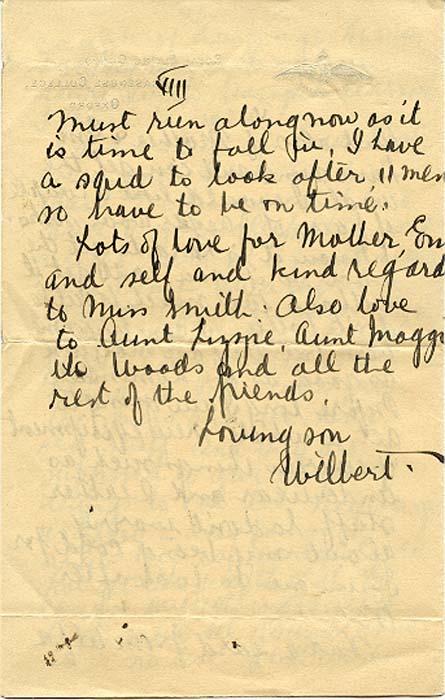 VIII
Must run along now as it
is time to fall in, I have
a squd to look after, 11 men
so have to be on time.
Lots of love for Mother, Em
and self and kind regard
to Miss Smith. Also love
to Aunt Lizzie, Aunt Maggi
Woods and all the
rest of the friends.
Loving son
Wilbert.